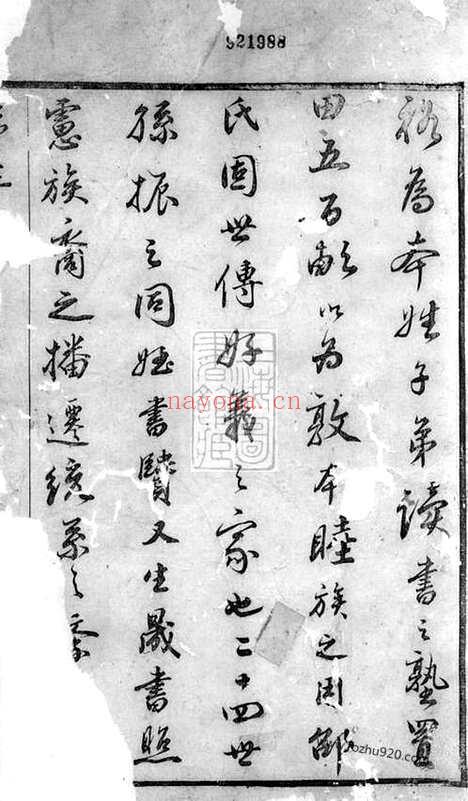 921988
裕為本姓子弟讀書之塾置
田五百畝以為敦本睦族之用鄒
氏固世傳好義之家也二十四世
孫振之同姪書麟又生晟書照
憲族裔之播遷統系之
nayona.cn
ozhu920.com